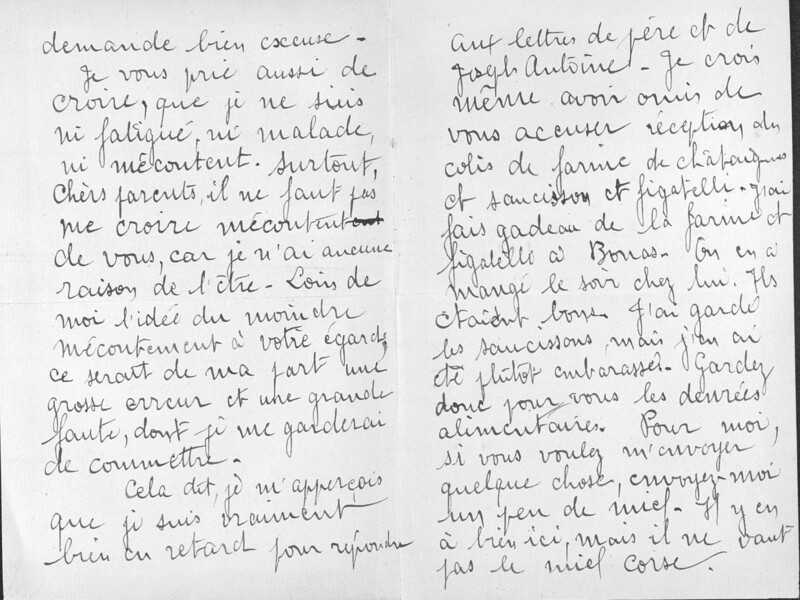 demande bien excuse -
Je vous prie aussi de
croire, que je ne suis
ni fatigué, ni malade,
ni mécontent. Surtout,
Chers parents, il ne faut pas
me croire mécontent
de vous, car je n'ai aucune
raison de l'être - Loin de
moi l'idée du moindre
mécontement à votre égard,
ce serait de ma part une
grosse erreur et une grande
faute, dont je me garderai
de commettre -
Cela dit, je m'apperçois
que je suis vraiment
bien en retard pour répondre
aux lettres de père et de
Joseph Antoine - Je crois
même avoir omis de
vous accuser réception du
colis de farine de châtaignes
et saucisson et figatelli - J'ai
fais gadeau de la farine et
figatelli à Bonas. On en a
mangé le soir chez lui. Ils
étaient bons. J'ai gardé
les saucissons, mais j'en ai
été plutôt embarassé. Gardez
donc pour vous les denrées
alimentaires. Pour moi,
si vous voulez m'envoyer
quelque chose, envoyez-moi
un peu de miel - Il y en
à bien ici, mais il ne vaut
pas le miel corse.